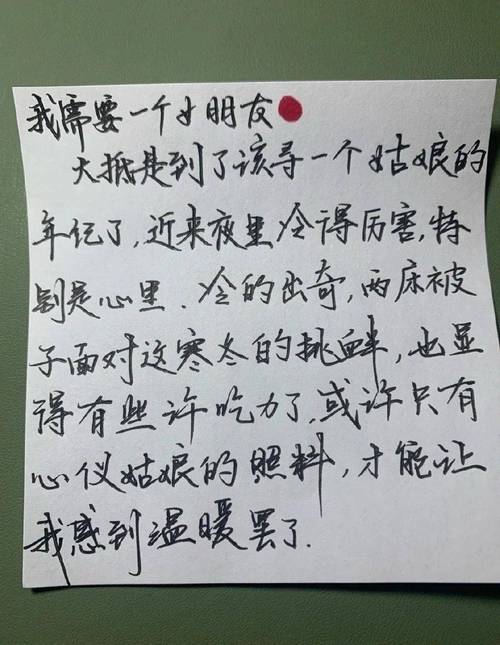 我需要一个女朋友
大抵是到了该寻一个姑娘的
年纪了,近来夜里冷得厉害,特
别是心里.冷的出奇,两床被
子面对这寒冬的挑衅,也显
得有些许吃力了,或许只有
心仪姑娘的照料,才能让
我感到温暖罢了.